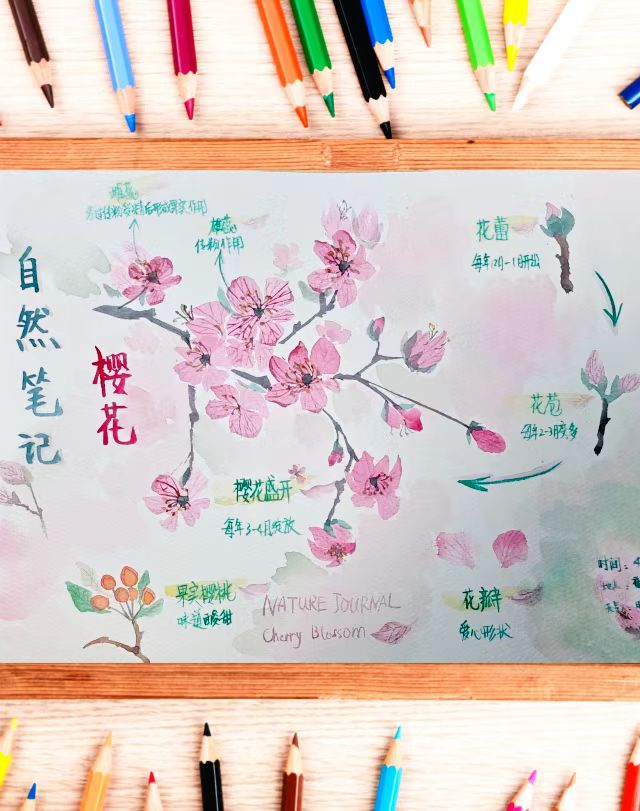 自然笔记
樱花
雌蕊
雄蕊
传粉作用
花蕾
花苞
每年2-3月
樱花盛开
每年3-4月绽放
果实樱桃
味道酸甜
NATURE JOURNAL
Cherry Blossom
花瓣
爱心形状
时间：4
地点：